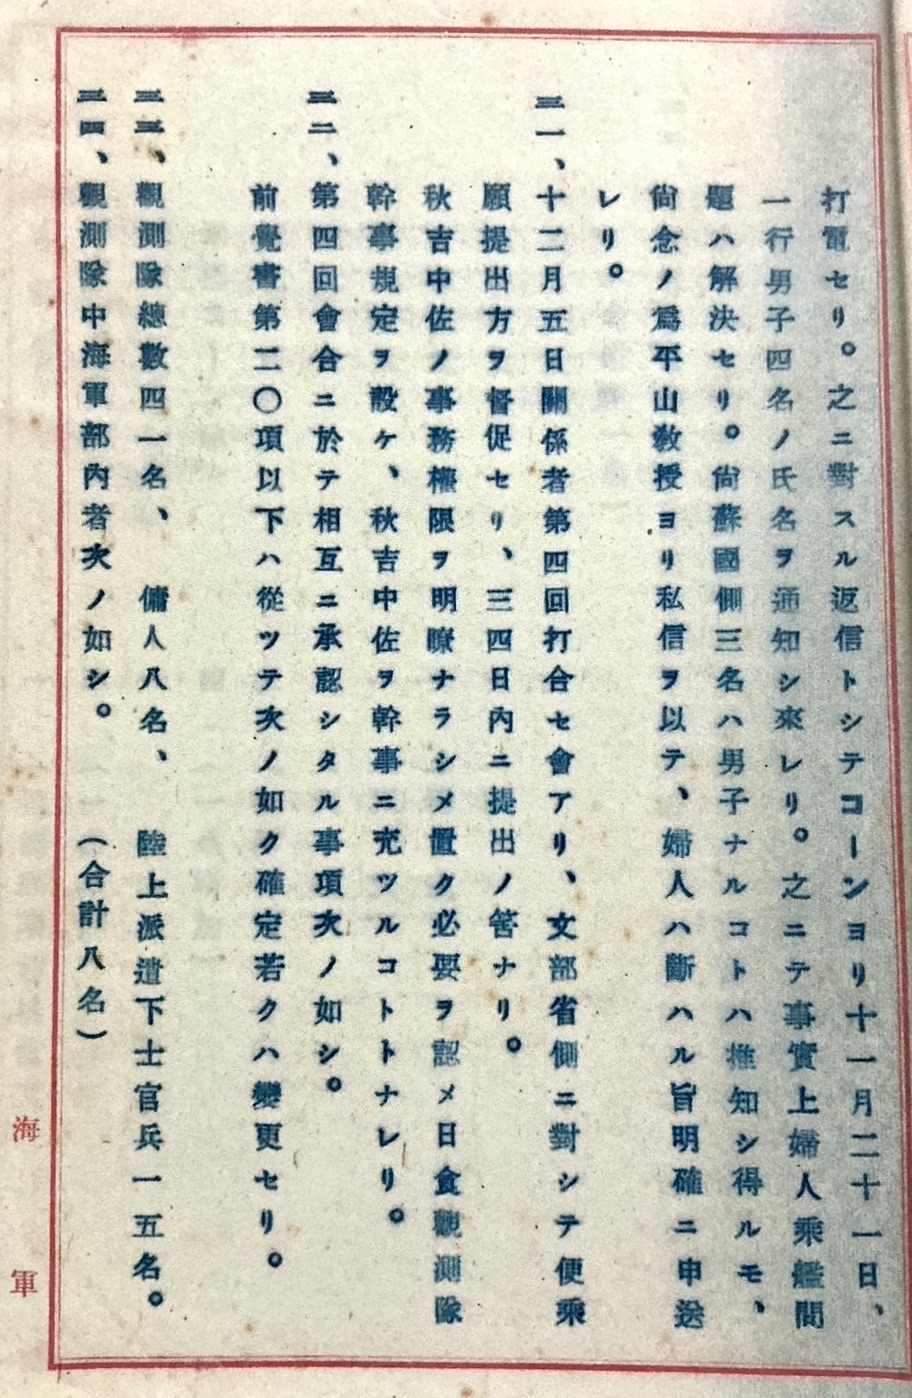 打電セリ。之ニ對スル返信トシテコーンヨリ十一月二十一日、
一行男子四名ノ氏名ヲ通知シ來レリ。之ニテ事實上婦人乘艦問
題ハ解決セリ。尙蘇國側三名ハ男子ナルコトハ推知シ得ルモ、
尙念ノ爲平山敎授ヨリ私信ヲ以テ、婦人ハ斷ハル旨明確ニ申送
レリ。
三一、十二月五日關係者第四回打合セ會アリ、文部省側ニ對シテ便乘
願提出方ヲ督促セリ、三四日內ニ提出ノ筈ナリ。
秋吉中佐ノ事務權限ヲ明瞭ナラシメ置ク必要ヲ認メ日食觀測隊
幹事規定ヲ設ケ、秋吉中佐ヲ幹事ニ充ツルコトトナレリ。
三二、第四回會合ニ於テ相互ニ承認シタル事項次ノ如シ。
前覺書第二〇項以下ハ從ツテ次ノ如ク確定若クハ變更セリ。
三三、觀測隊總數四一名、 傭人八名、 陸上派遣下士官兵一五名。
三四、觀測隊中海軍部內者次ノ如シ。 (合計八名)
海軍